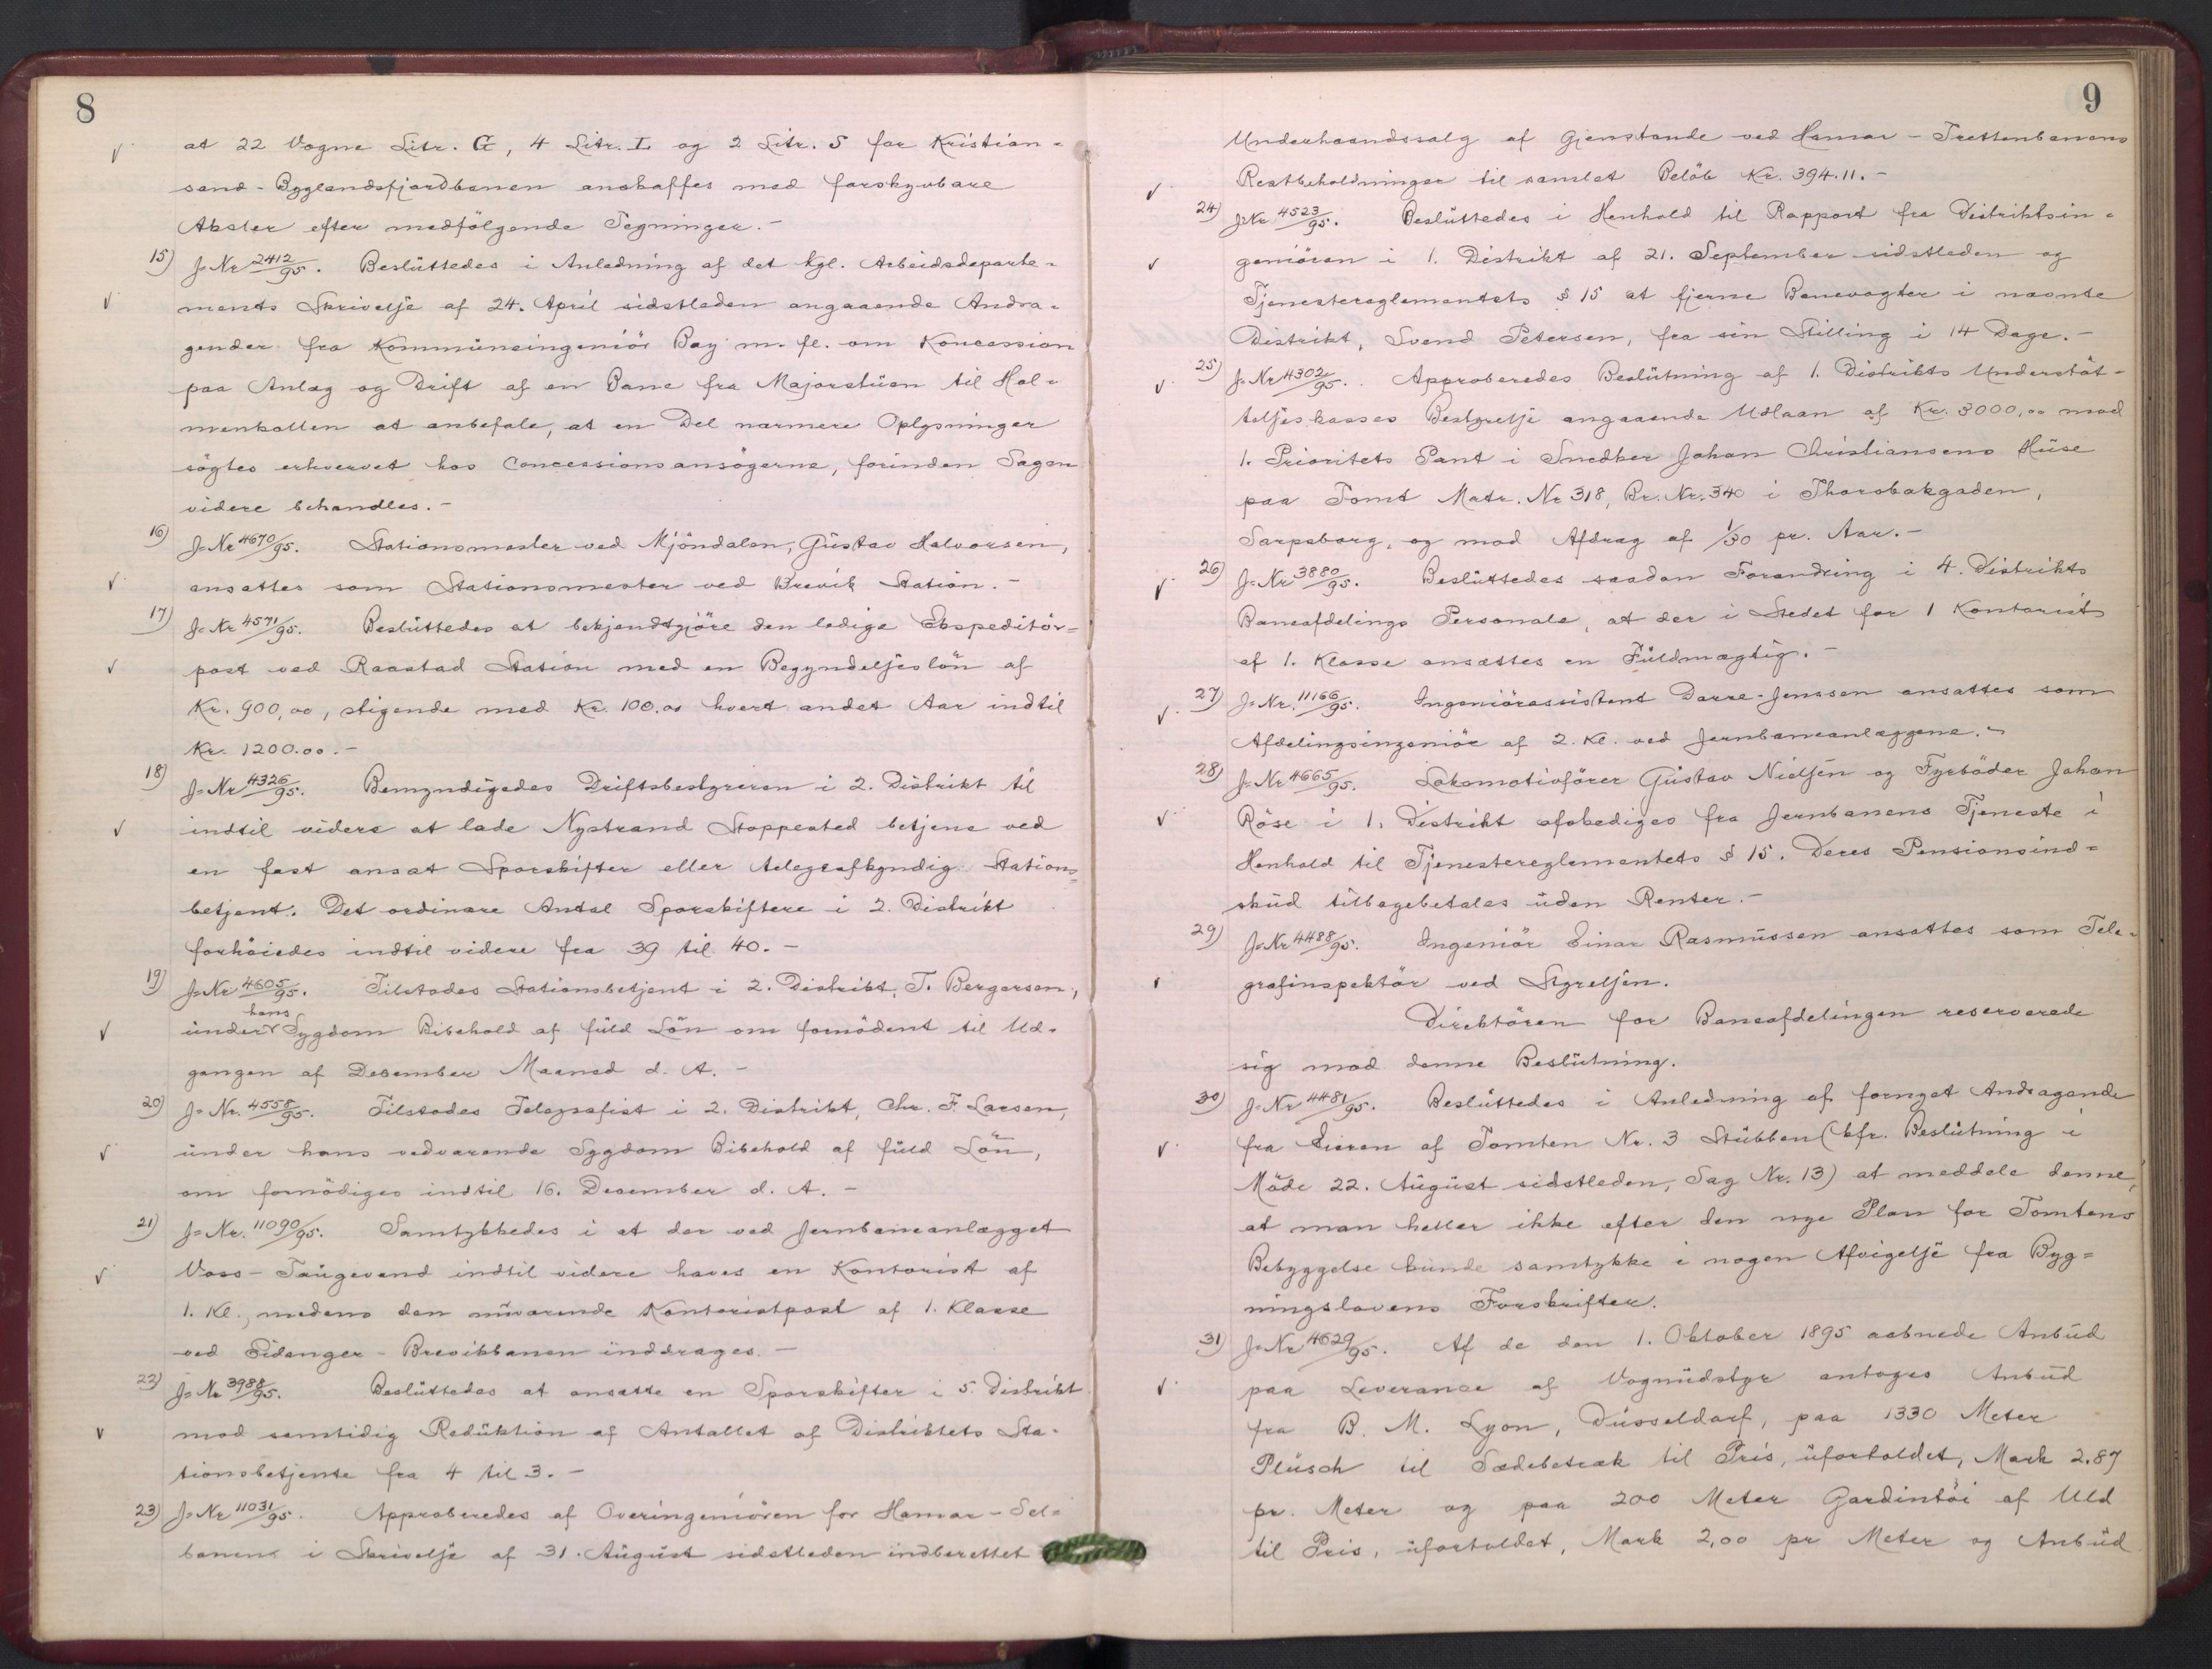 8
at 22 Vogne Litr. G, 4 Litr. L og 2 Litr. S for Kristian-
sand - Byglandsfjordbanen anskaffes med forskyvbare
Aksler efter medfölgende Tegninger. -
15) J=Nr 2412/95. Beslüttedes i Anledning af det kgl. Arbeidsdeparte-
ments Skrivelse af 24. April sidstleden angaaende Andra-
gender fra Kommüneingeniör Bay m. fl. om Koncession
paa Anlæg og Drift af en Bane fra Majorstüen til Hol-
menkollen at anbefale, at en Del nærmere Oplysninger
sögtes erhvervet hos Concessionsansögerne, forinden Sagen
videre behandles. -
16) J=Nr 4670/95. Stationsmester ved Mjöndalen, Güstav Halvorsen,
ansattes som Stationsmester ved Brevik Station. -
17) J=Nr 4571/95. Beslüttedes at bekjendtgjöre den ledige Expeditör-
post ved Raastad Station med en Begyndelseslön af
Kr. 900,00, stigende med Kr. 100.00 hvert andet Aar indtil
Kr. 1200.00. -
18) J=Nr 4326/95. Bemyndigedes Driftsbestyreren i 2. Distrikt til
indtil videre at lade Nystrand Stoppested betjene ved
en fast ansat Sporskifter eller telegrafkyndig Stations-
betjent. Det ordinære Antal Sporskiftere i 2. Distrikt
forhöiedes indtil videre fra 39 til 40. -
19) J=Nr 4605/95. Tilstodes Stationsbetjent i 2. Distrikt, T. Bergersen,
hans
ünder Sygdom Bibehold af füld Lön om fornödent til Ud-
gangen af Desember Maaned d. A. -
20) J=Nr. 4558/95. Tilstodes Telegrafist i 2. Distrikt, Chr. F. Larsen,
ünder hans vedvarende Sygdom Bibehold af füld Lön,
om fornödiges indtil 16. Desember d. A. -
21) J=Nr. 11090/95. Samtykkedes i at der ved Jernbaneanlægget
Voss - Taugevand indtil videre haves en Kontorist af
1. Kl., medens den nüværende Kontoristpost af 1. Klasse
ved Eidanger - Brevikbanen inddrages. -
22) J=Nr 3988/95. Beslüttedes at ansætte en Sporskifter i 5. Distrikt
mod samtidig Redüktion af Antallet af Distriktets Sta-
tionsbetjente fra 4 til 3. -
23) J=Nr 11031/95. Approberedes af Overingeniören for Hamar - Sel-
banen i Skrivelse af 31. Aügüst sidstleden indberettet
9
Underhaandssalg af Gjenstande ved Hamar - Trettenbanens
Restbeholdninger til samlet Belöb Kr. 394.11. -
24) J=Nr 4523/95. Beslüttedes i Henhold til Rapport fra Distriktsin-
geniören i 1. Distrikt af 21. September sidstleden og
Tjenestereglementets § 15 at fjerne Banevogter i nævnte
Distrikt, Svend Petersen, fra sin Stilling i 14 Dage. -
25) J=Nr 4302/95. Approberedes Beslütning af 1. Distrikts Understöt-
telseskasses Bestyrelse angaaende Udlaan af Kr. 3000,00 mod
1. Prioritets Pant i Snedker Johan Christiansens Hüse
paa Tomt Matr. Nr 318, Br. Nr. 340 i Thorsbakgaden,
Sarpsborg, og mod Afdrag af 1/30 pr. Aar. -
26) J=Nr 3880/95. Beslüttedes saadan Forandring i 4. Distrikts
Baneafdelings Personale, at der i Stedet for 1 Kontorist
af 1. Klasse ansættes en Füldmægtig. -
27) J=Nr. 11166/95. Ingeniörassistent Darre-Jenssen ansattes som
Afdelingsingeniör af 2. Kl. ved Jernbaneanlæggene. -
28) J=Nr 4665/95. Lokomotivförer Güstav Nielsen og Fyrböder Johan
Röse i 1. Distrikt afskediges fra Jernbanens Tjeneste i
Henhold til Tjenestereglementets § 15. Deres Pensionsind-
sküd tilbagebetales üden Renter. -
29) J=Nr 4488/95. Ingeniör Einar Rasmüssen ansattes som Tele-
grafinspektör ved Styrelsen.
Direktören for Baneafdelingen reserverede
sig mod denne Beslütning.
30) J=Nr 4481/95. Beslüttedes i Anledning af fornyet Andragende
fra Eieren af Tomten Nr. 3 Stübben (kfr. Beslütning i
Möde 22. Aügüst sidstleden, Sag Nr. 13) at meddele denne,
at man heller ikke efter den nye Plan for Tomtens
Bebyggelse künde samtykke i nogen Afvigelse fra Byg-
ningslovens Forskrifter.
31) J=Nr 4629/95. Af de den 1. Oktober 1895 aabnede Anbüd
paa Leverance af Vognüdstyr antoges Anbüd
fra B. M. Lyon, Düsseldorf, paa 1330 Meter
Plüsch til Sædebetræk til Pris, üfortoldet, Mark 2.87
pr. Meter og paa 200 Meter Gardintöi af Uld
til Pris, üfortoldet, Mark 2,00 pr Meter og Anbüd